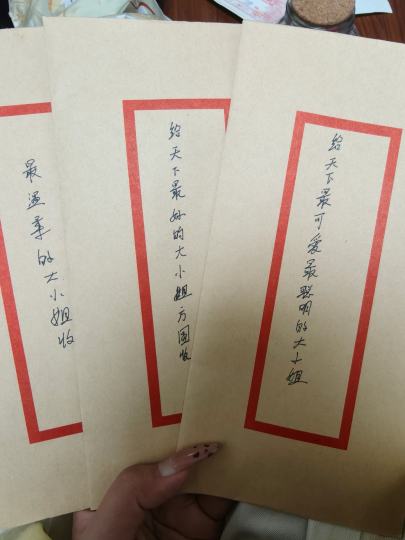 最温柔的大小姐收
给天下最好的大小姐方圆收
给天下最可爱最聪明的大小姐